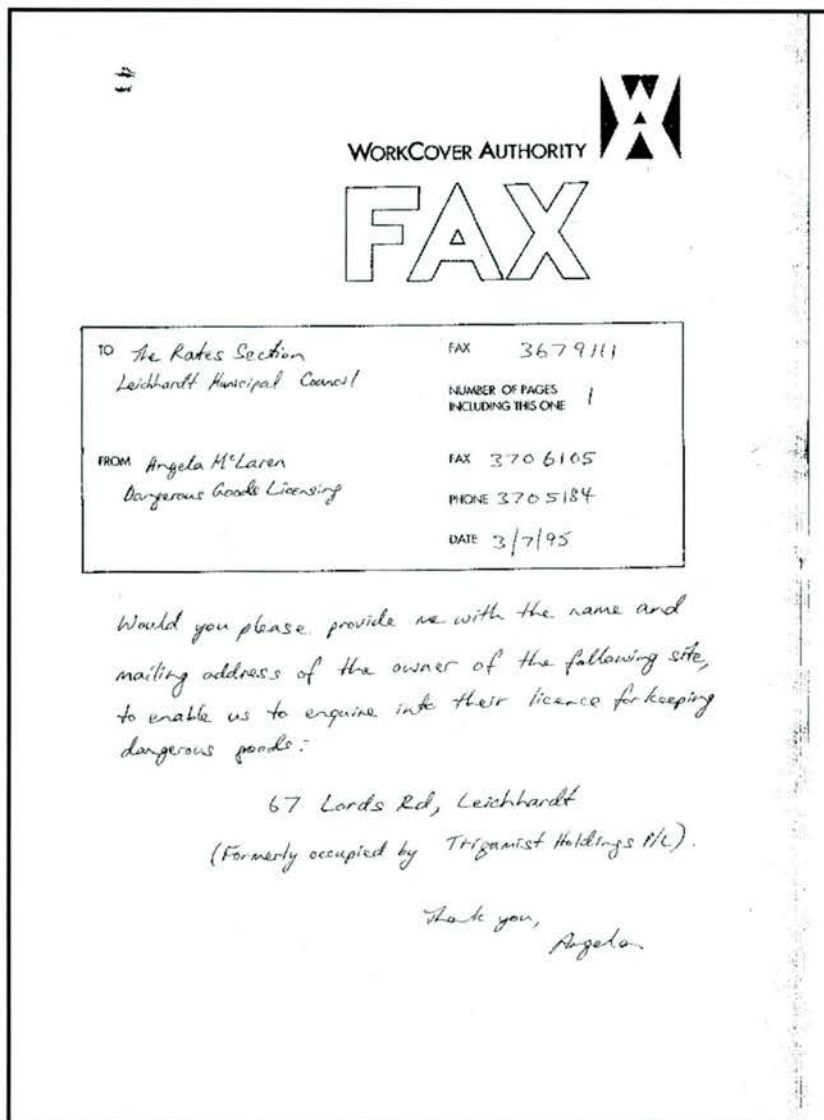 WORKCOVER AUTHORITY
FAX
TO The Rates Section
Leichhardt Municipal Council
FAX 3679111
NUMBER OF PAGES
INCLUDING THIS ONE 1
FROM Angela McLaren
Dangerous Goods Licensing
FAX 3706105
PHONE 3705184
DATE 3/7/95
Would you please provide me with the name and
mailing address of the owner of the following site,
to enable us to enquire into their licence for keeping
dangerous goods:
67 Lords Rd, Leichhardt
(Formerly occupied by Trigamist Holdings P/L).
Thank you,
Angela